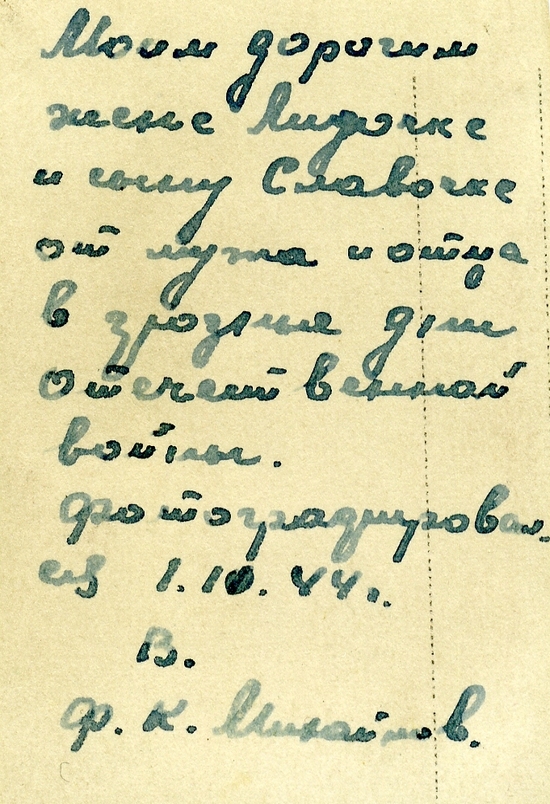 Моим дорогим
жене Лидочке
и сыну Славочке
от мужа и отца
в грозные дни
отечественной
войны.
Фотографировал-
ся 1.10.44г.
В.
Ф. К. Михайлов.